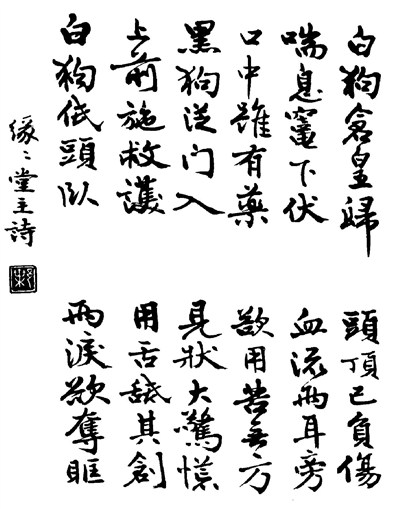 白狗倉皇歸
頭頂已負傷
喘息竈下伏
血流兩耳旁
口中雖有藥
欲用苦無方
黑狗從门入
見狀大驚慌
上前施救護
用舌舐其創
白狗低頭臥
兩淚欲奪眶
緣〻堂主詩